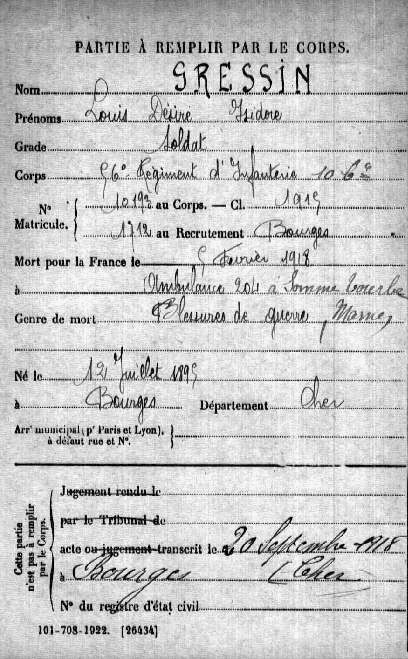 PARTIE À REMPLIR PAR LE CORPS.
Nom GRESSIN
Prénoms Louis Désiré Isidore
Grade Soldat
Corps 56e Régiment d'Infanterie 10 Cie
N° Matricule. 10193 au Corps. — Cl. 1915
1712 au Recrutement Bourges
Mort pour la France le 5 Février 1918
à Ambulance 204 à Somme Tourbe
Genre de mort Blessures de guerre, Marne,
Né le 12 Juillet 1895
à Bourges Département Cher
Arrt municipal (pr Paris et Lyon),
à défaut rue et N°.
Cette partie n'est pas à remplir par le Corps.
Jugement rendu le
par le Tribunal de
acte ou jugement transcrit le 20 Septembre 1918
à Bourges (Cher
N° du registre d'état civil
101-708-1922. [26434]